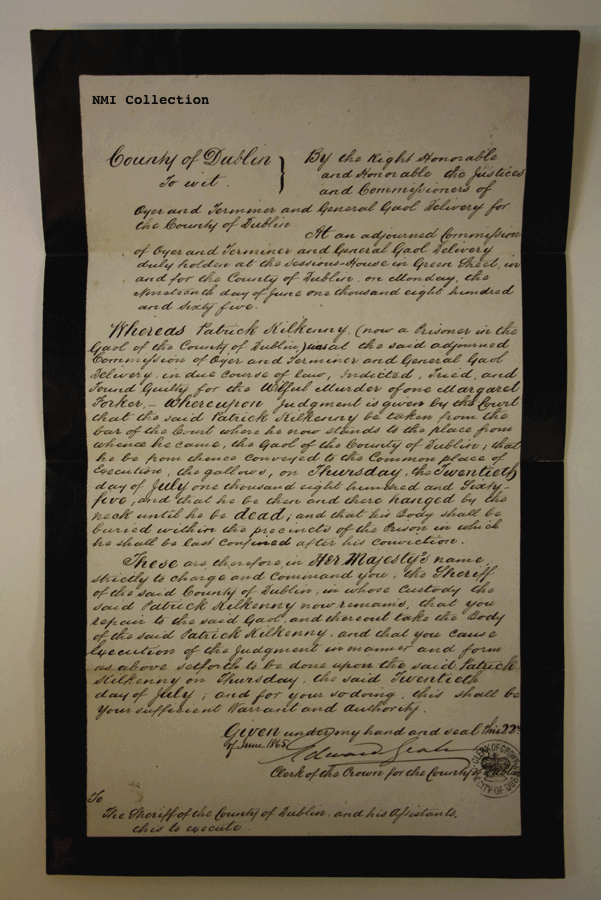 NMI Collection
County of Dublin } By the Right Honorable
To wit. and Honorable the Justices
and Commissioners of
Oyer and Terminer and General Gaol Delivery for
the County of Dublin
At an adjourned Commission
of Oyer and Terminer and General Gaol Delivery
duly holden at the Sessions-House in Green Street, in
and for the County of Dublin, on Monday, the
Nineteenth day of June one thousand eight hundred
and sixty five.
Whereas Patrick Kilkenny, (now a Prisoner in the
Gaol of the County of Dublin,) was at the said adjourned
Commission of Oyer and Terminer and General Gaol
Delivery, in due course of law, Indicted, Tried, and
Found Guilty for the Wilful Murder of one Margaret
Forker, — Whereupon Judgment is given by the Court
that the said Patrick Kilkenny be taken from the
bar of the Court where he now stands to the place from
whence he came, the Gaol of the County of Dublin; that
he be from thence conveyed to the Common place of
Execution, the gallows, on Thursday, the Twentieth
day of July one thousand eight hundred and Sixty-
five, and that he be then and there hanged by the
neck until he be dead; and that his Body shall be
buried within the precincts of the Prison in which
he shall be last confined after his conviction.
These are, therefore, in Her Majesty's name,
strictly to charge and command you, the Sheriff
of the said County of Dublin, in whose Custody the
said Patrick Kilkenny now remains, that you
repair to the said Gaol, and thereout take the Body
of the said Patrick Kilkenny, and that you cause
Execution of the Judgment in manner and form
as above setforth to be done upon the said Patrick
Kilkenny on Thursday, the said Twentieth
day of July; and for your so doing, this shall be
your sufficient Warrant and Authority.
Given under my hand and seal this 22nd
of June 1865
Edward
Clerk of the Crown for the County of Dublin
CLERK OF CROWN
CITY OF DUBLIN
To
The Sheriff of the County of Dublin, and his Assistants,
this to execute.